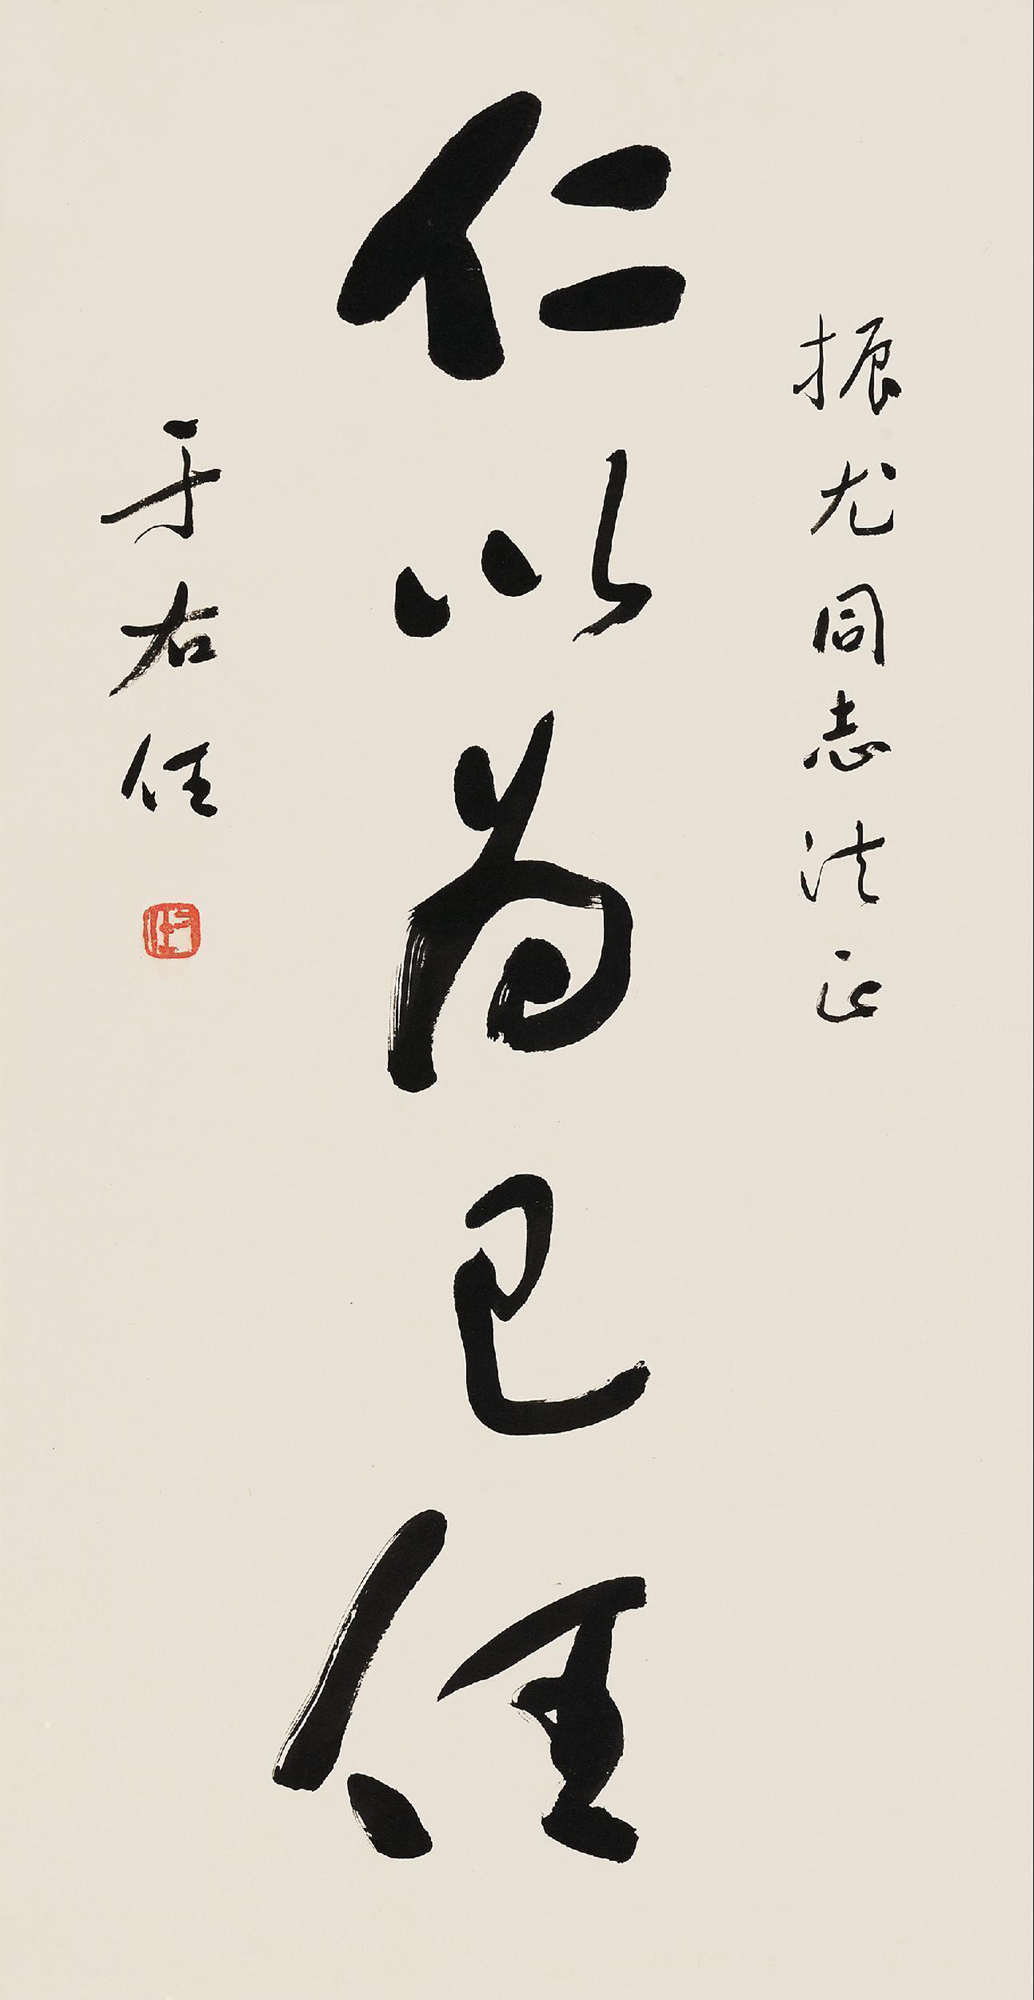 振尤同志法正
仁以為己任
于右任